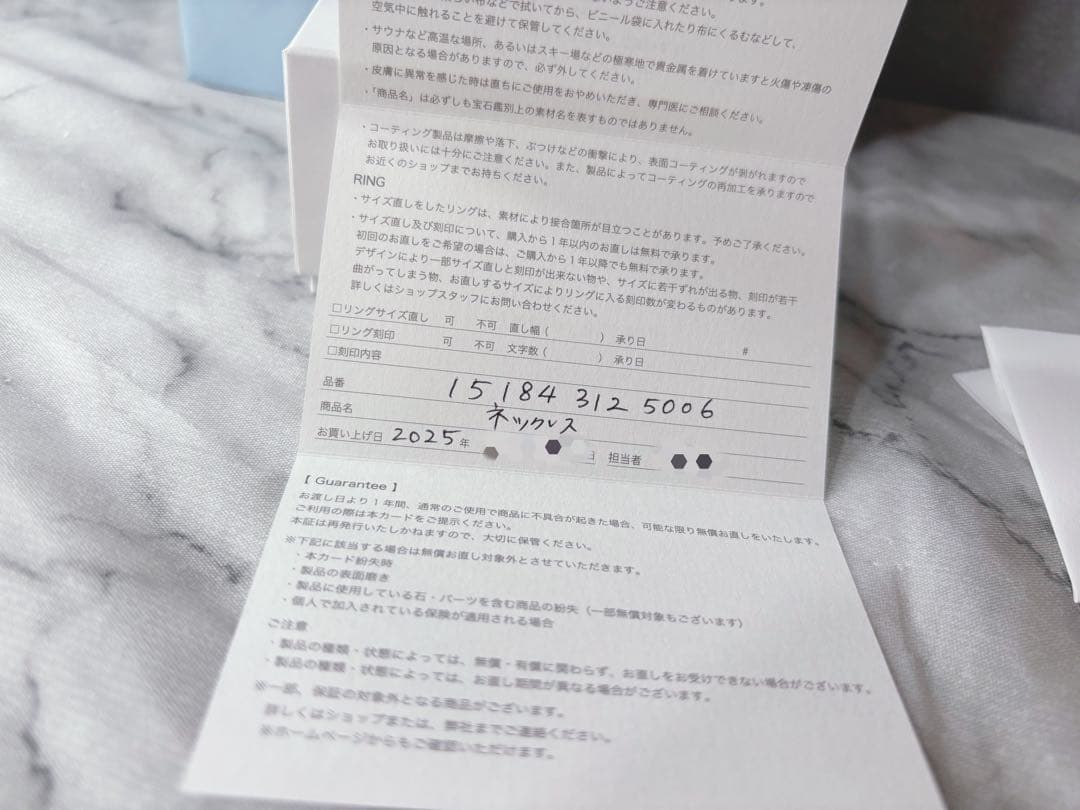 ようご注意ください。
布などで拭いてから、ビニール袋に入れたり布にくるむなどして、
空気中に触れることを避けて保管してください。
・サウナなど高温な場所、あるいはスキー場などの極寒地で貴金属を着けていますと火傷や凍傷の
原因となる場合がありますので、必ず外してください。
・皮膚に異常を感じた時は直ちにご使用をおやめいただき、専門医にご相談ください。
・「商品名」は必ずしも宝石鑑別上の素材名を表すものではありません。
・コーティング製品は摩擦や落下、ぶつけなどの衝撃により、表面コーティングが剥がれますので
お取り扱いには十分にご注意ください。また、製品によってコーティングの再加工を承りますので
お近くのショップまでお持ちください。
RING
・サイズ直しをしたリングは、素材により接合箇所が目立つことがあります。予めご了承ください。
・サイズ直し及び刻印について、購入から1年以内のお直しは無料で承ります。
初回のお直しをご希望の場合は、ご購入から1年以降でも無料で承ります。
デザインにより一部サイズ直しと刻印が出来ない物や、サイズに若干ずれが出る物、刻印が若干
曲がってしまう物、お直しするサイズによりリングに入る刻印数が変わるものがあります。
詳しくはショップスタッフにお問い合わせください。
□リングサイズ直し 可 不可 直し幅 ( ) 承り日 #
□リング刻印 可 不可 文字数 ( ) 承り日
□刻印内容
品番 15184 312 5006
商品名 ネックレス
お買い上げ日 2025年 日 担当者
【 Guarantee 】
お渡し日より1年間、通常のご使用で商品に不具合が起きた場合、可能な限り無償お直しをいたします。
ご利用の際は本カードをご提示ください。
本証は再発行いたしかねますので、大切に保管ください。
※下記に該当する場合は無償お直し対象外とさせていただきます。
・本カード紛失時
・製品の表面磨き
・製品に使用している石・パーツを含む商品の紛失（一部無償対象もございます）
・個人で加入されている保険が適用される場合
ご注意
・製品の種類・状態によっては、無償・有償に関わらず、お直しをお受けできない場合がございます。
・製品の種類・状態によっては、お直し期間が異なる場合がございます。
※一部、保証の対象外となる商品がございます。
詳しくはショップまたは、弊社までご連絡ください。
※ホームページからもご確認いただけます。